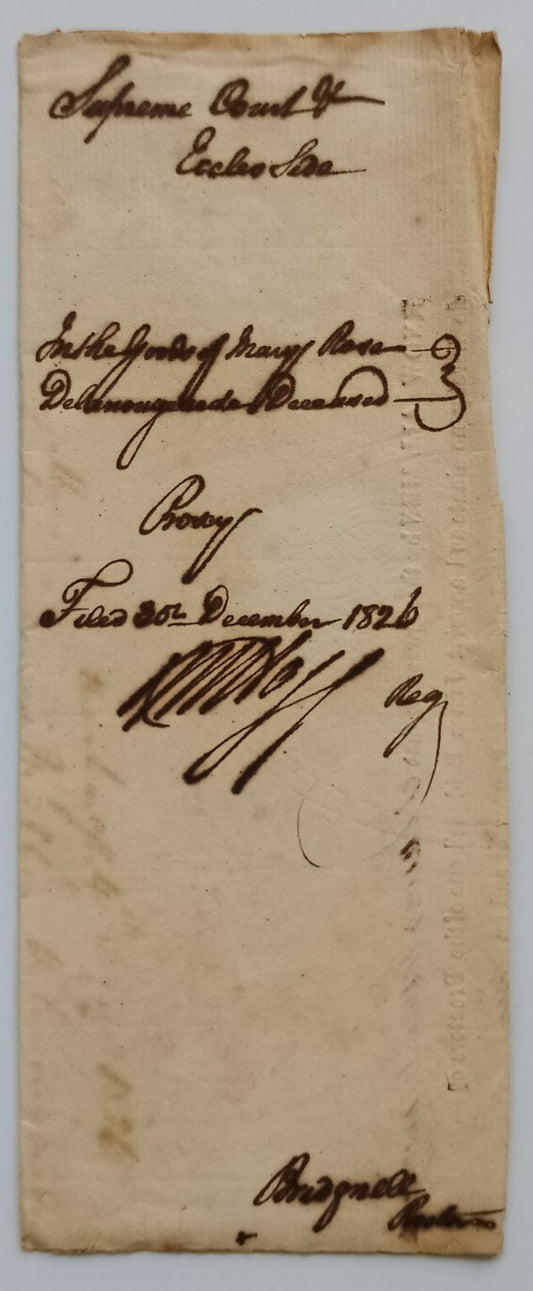 Supreme Court &
Eccles Side
In the Goods of Mary Rose
Deceased
Proxy
Filed 20th December 1826
Reg
Bridgnell
Proctor